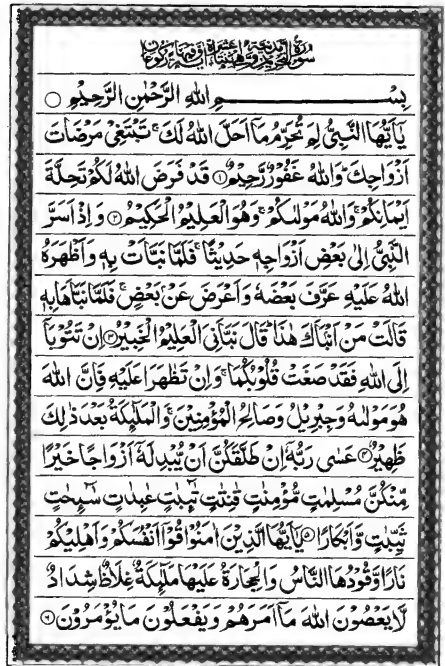 بِسْمِ اللهِ الرَّحْمٰنِ الرَّحِيْمِ ○
يٰٓاَيُّهَا النَّبِيُّ لِمَ تُحَرِّمُ مَآ اَحَلَّ اللهُ لَكَ ۚ تَبْتَغِيْ مَرْضَاتَ
اَزْوَاجِكَ ؕ وَاللهُ غَفُوْرٌ رَّحِيْمٌ ۝۱ قَدْ فَرَضَ اللهُ لَكُمْ تَحِلَّةَ
اَيْمَانِكُمْ ۚ وَاللهُ مَوْلٰىكُمْ ۚ وَهُوَ الْعَلِيْمُ الْحَكِيْمُ ۝۲ وَاِذْ اَسَرَّ
النَّبِيُّ اِلٰى بَعْضِ اَزْوَاجِهٖ حَدِيْثًا ۚ فَلَمَّا نَبَّاَتْ بِهٖ وَاَظْهَرَهُ
اللهُ عَلَيْهِ عَرَّفَ بَعْضَهٗ وَاَعْرَضَ عَنْۢ بَعْضٍ ۚ فَلَمَّا نَبَّاَهَا بِهٖ
قَالَتْ مَنْ اَنْۢبَاَكَ هٰذَا ؕ قَالَ نَبَّاَنِيَ الْعَلِيْمُ الْخَبِيْرُ ۝۳ اِنْ تَتُوْبَآ
اِلَى اللهِ فَقَدْ صَغَتْ قُلُوْبُكُمَا ۚ وَاِنْ تَظٰهَرَا عَلَيْهِ فَاِنَّ اللهَ
هُوَ مَوْلٰىهُ وَجِبْرِيْلُ وَصَالِحُ الْمُؤْمِنِيْنَ ۚ وَالْمَلٰٓئِكَةُ بَعْدَ ذٰلِكَ
ظَهِيْرٌ ۝۴ عَسٰى رَبُّهٗٓ اِنْ طَلَّقَكُنَّ اَنْ يُّبْدِلَهٗٓ اَزْوَاجًا خَيْرًا
مِّنْكُنَّ مُسْلِمٰتٍ مُّؤْمِنٰتٍ قٰنِتٰتٍ تٰٓئِبٰتٍ عٰبِدٰتٍ سٰٓئِحٰتٍ
ثَيِّبٰتٍ وَّاَبْكَارًا ۝۵ يٰٓاَيُّهَا الَّذِيْنَ اٰمَنُوْا قُوْٓا اَنْفُسَكُمْ وَاَهْلِيْكُمْ
نَارًا وَّقُوْدُهَا النَّاسُ وَالْحِجَارَةُ عَلَيْهَا مَلٰٓئِكَةٌ غِلَاظٌ شِدَادٌ
لَّا يَعْصُوْنَ اللهَ مَآ اَمَرَهُمْ وَيَفْعَلُوْنَ مَا يُؤْمَرُوْنَ ۝۶